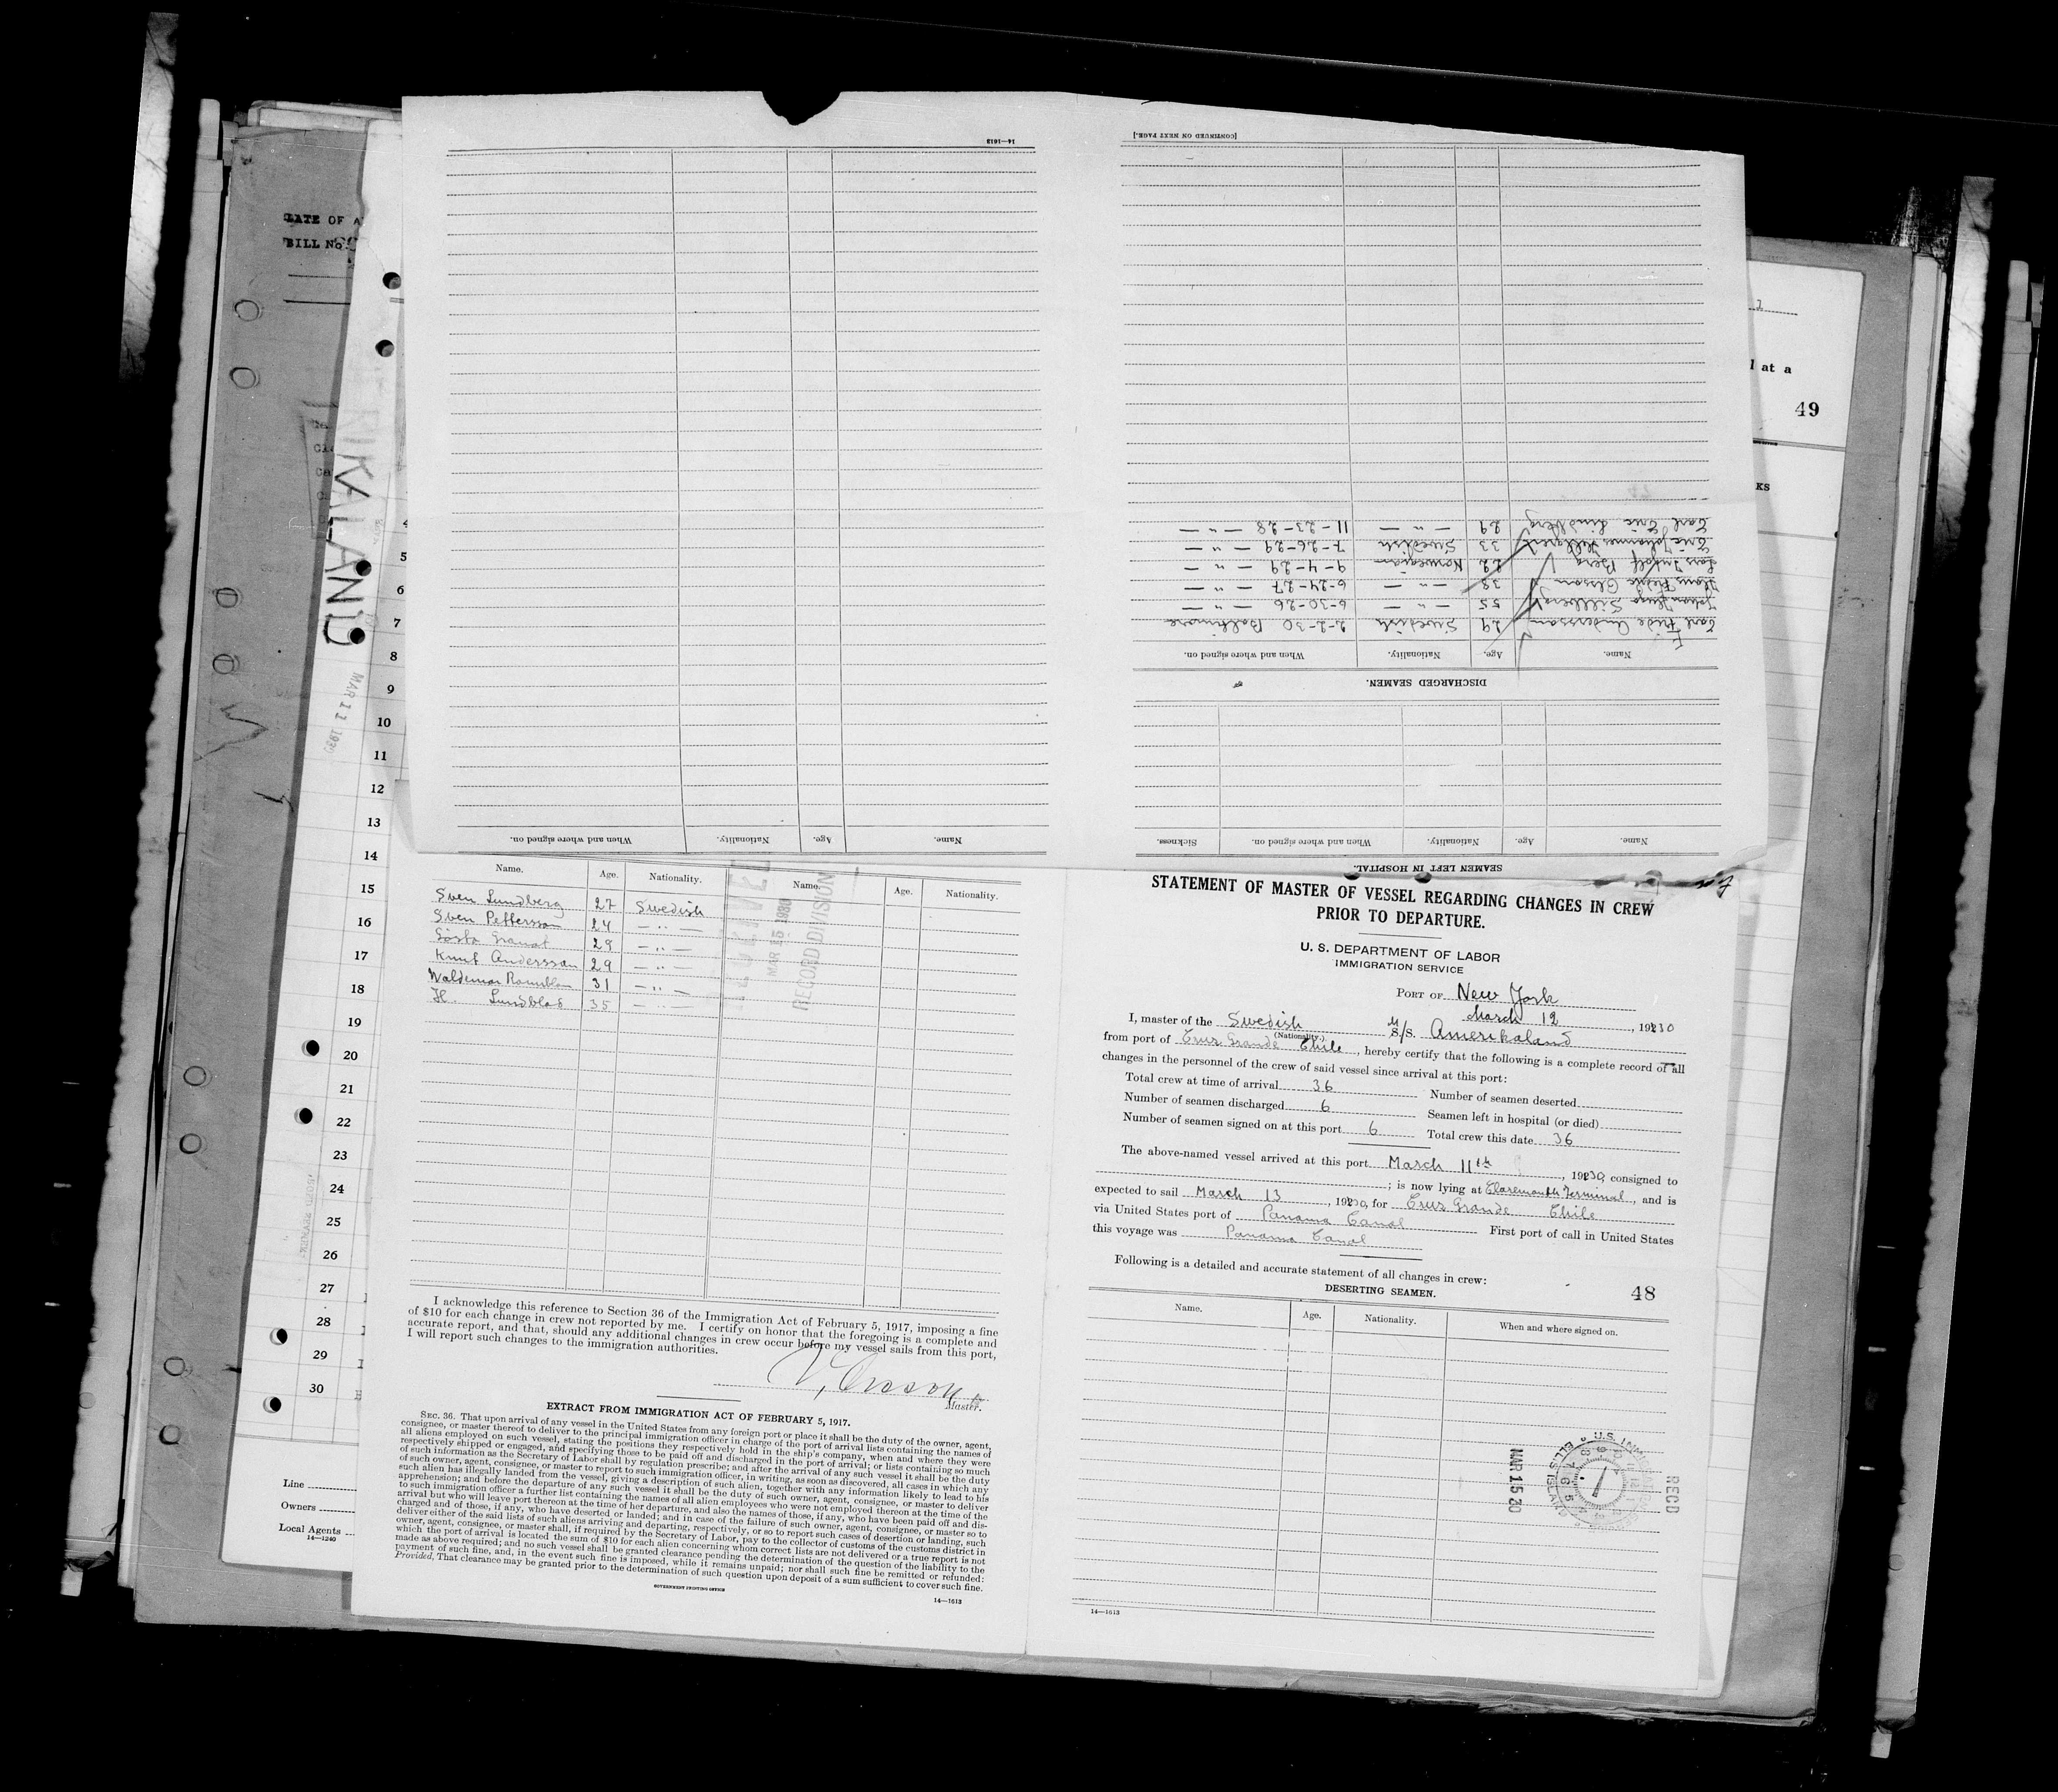 DATE OF A
BILL No.
RIKALAND
MAR 11 1930
4
5
6
7
8
9
10
11
12
13
14
15
16
17
18
19
20
21
22
23
24
25
26
27
28
29
30
Line
Owners
Local Agents
14—1240
l at a
49
KS
14—1613
Name. Age. Nationality. When and where signed on.
[CONTINUED ON NEXT PAGE.]
SEAMEN LEFT IN HOSPITAL.
Name. Age. Nationality. When and where signed on. Sickness.
DISCHARGED SEAMEN.
Name. Age. Nationality. When and where signed on.
Carl Fride Andersson 29 Swedish 2-2-30 Baltimore
Johan Hugo Sillberg 55 — " — 6-30-26 — " —
Hans Fride Olsson 38 — " — 6-24-27 — " —
Lars Berg 22 Norwegian 9-4-29 — " —
Eric Johannes 33 Swedish 7-26-29 — " —
Carl Eric Lindberg 29 — " — 11-23-28 — " —
Name. Age. Nationality. Name. Age. Nationality.
Sven Lundberg 27 Swedish
Sven Pettersson 24 — " —
Gösta Granat 29 — " —
Knut Andersson 29 — " —
Waldemar 31 — " —
H. Lundblad 35 — " —
RECEIVED
MAR 15 1930
RECORD DIVISION
I acknowledge this reference to Section 36 of the Immigration Act of February 5, 1917, imposing a fine
of $10 for each change in crew not reported by me. I certify on honor that the foregoing is a complete and
accurate report, and that, should any additional changes in crew occur before my vessel sails from this port,
I will report such changes to the immigration authorities.
Master.
EXTRACT FROM IMMIGRATION ACT OF FEBRUARY 5, 1917.
SEC. 36. That upon arrival of any vessel in the United States from any foreign port or place it shall be the duty of the owner, agent,
consignee, or master thereof to deliver to the principal immigration officer in charge of the port of arrival lists containing the names of
all aliens employed on such vessel, stating the positions they respectively hold in the ship's company, when and where they were
respectively shipped or engaged, and specifying those to be paid off and discharged in the port of arrival; or lists containing so much
of such information as the Secretary of Labor shall by regulation prescribe; and after the arrival of any such vessel it shall be the duty
of such owner, agent, consignee, or master to report to such immigration officer, in writing, as soon as discovered, all cases in which any
such alien has illegally landed from the vessel, giving a description of such alien, together with any information likely to lead to his
apprehension; and before the departure of any such vessel it shall be the duty of such owner, agent, consignee, or master to deliver
to such immigration officer a further list containing the names of all alien employees who were not employed thereon at the time of the
arrival but who will leave port thereon at the time of her departure, and also the names of those, if any, who have been paid off and dis-
charged and of those, if any, who have deserted or landed; and in case of the failure of such owner, agent, consignee, or master so to
deliver either of the said lists of such aliens arriving and departing, respectively, or so to report such cases of desertion or landing, such
owner, agent, consignee, or master shall, if required by the Secretary of Labor, pay to the collector of customs of the customs district in
which the port of arrival is located the sum of $10 for each alien concerning whom correct lists are not delivered or a true report is not
made as above required; and no such vessel shall be granted clearance pending the determination of the question of the liability to the
payment of such fine, and, in the event such fine is imposed, while it remains unpaid; nor shall such fine be remitted or refunded:
Provided, That clearance may be granted prior to the determination of such question upon deposit of a sum sufficient to cover such fine.
GOVERNMENT PRINTING OFFICE
14—1613
STATEMENT OF MASTER OF VESSEL REGARDING CHANGES IN CREW
PRIOR TO DEPARTURE.
U. S. DEPARTMENT OF LABOR
IMMIGRATION SERVICE
PORT OF New York
March 12, 1930
I, master of the Swedish M/S. Amerikaland
(Nationality.)
from port of Cruz Grande Chile, hereby certify that the following is a complete record of all
changes in the personnel of the crew of said vessel since arrival at this port:
Total crew at time of arrival 36 Number of seamen deserted
Number of seamen discharged 6 Seamen left in hospital (or died)
Number of seamen signed on at this port 6 Total crew this date 36
The above-named vessel arrived at this port March 11th, 1930, consigned to
; is now lying at Claremont Terminal, and is
expected to sail March 13, 1930, for Cruz Grande Chile
via United States port of Panama Canal First port of call in United States
this voyage was Panama Canal
Following is a detailed and accurate statement of all changes in crew:
48
DESERTING SEAMEN.
Name. Age. Nationality. When and where signed on.
MAR 15 30
U.S. IMM
ELLIS ISLAND
REC'D
14—1613